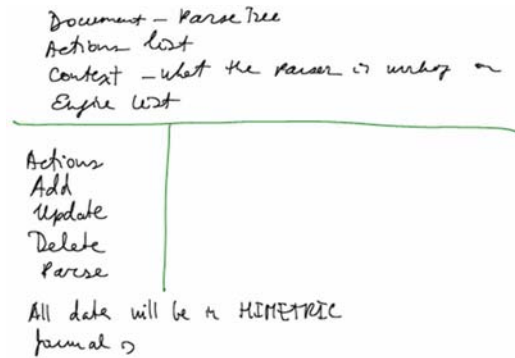 Document - Parse Tree
Actions list
Context - what the parser is working on
Engine list
Actions
Add
Update
Delete
Parse
All data will be in HIMETRIC
format